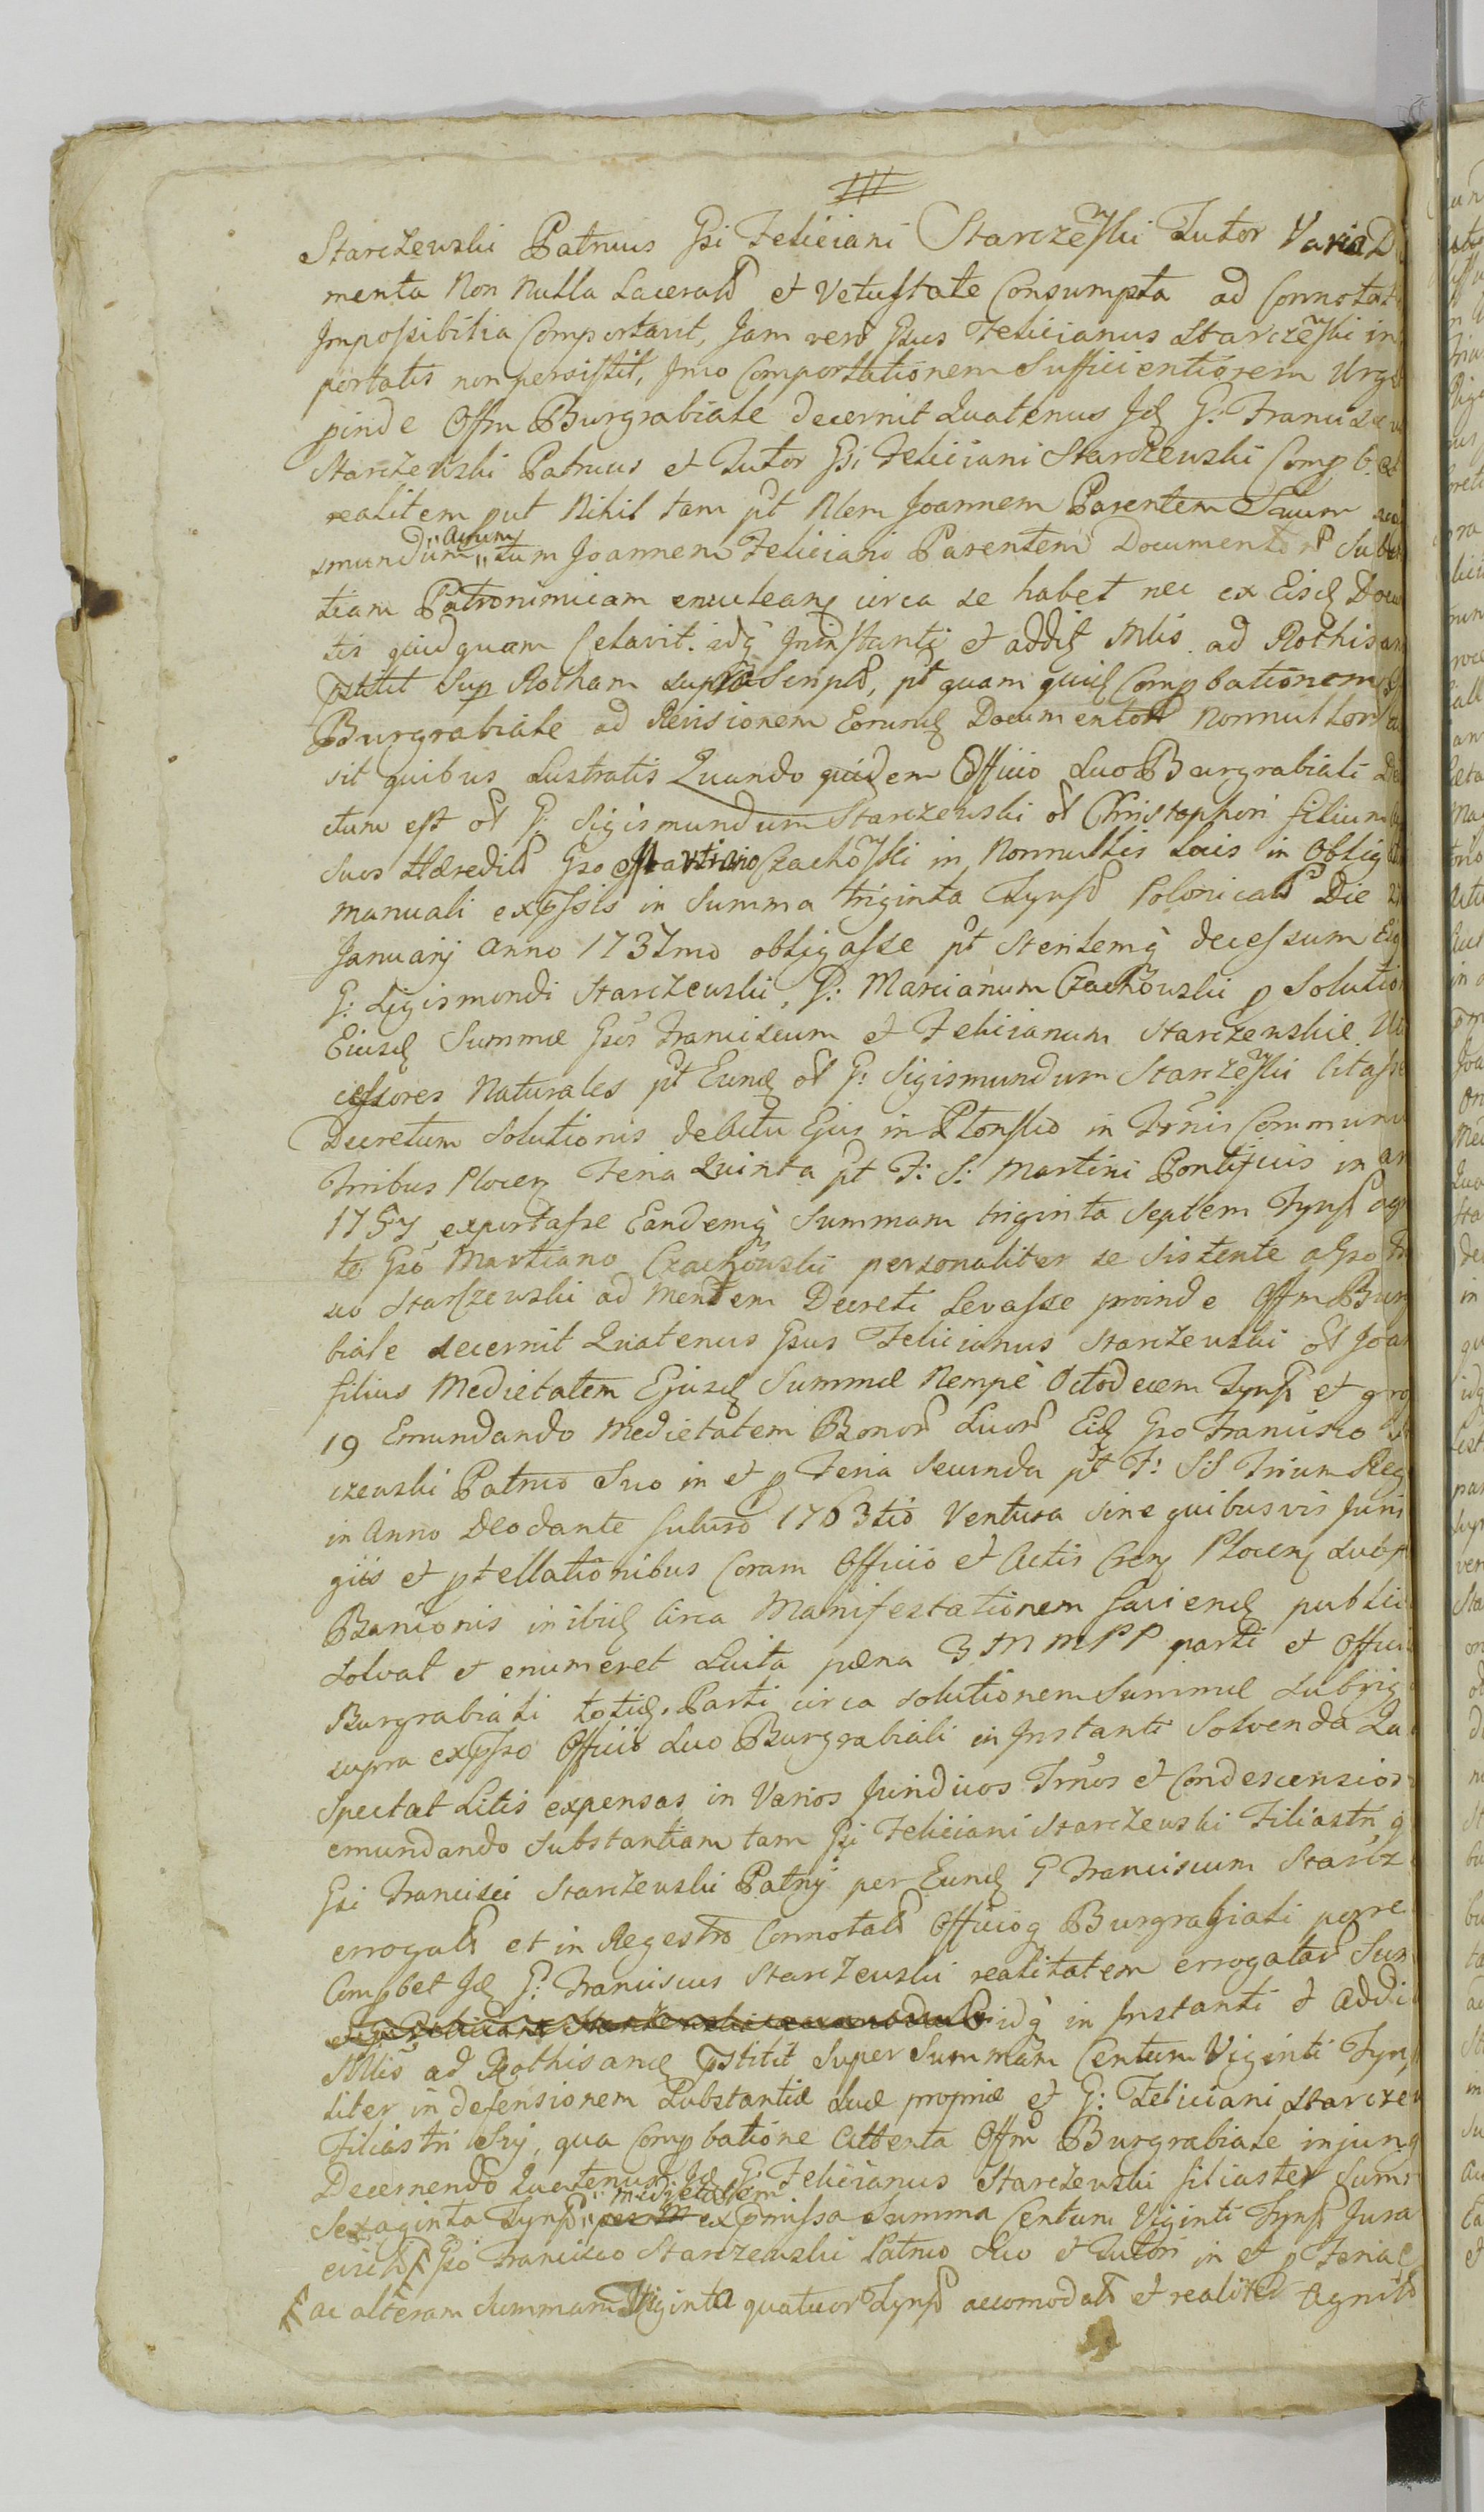 Starczewski Patruus Gsi Feliciani Starczewski Tutor Varia D
menta Non Nulla Lacerata et Vetustate Consumpta ad Connotat
Impossibilia Comportavit, Jam vero Gsus Felicianus Starczewski in
portatis non persistit, Imo Comportationem Sufficientiorem Urge
pinde Offm Burgrabiale decernit Quatenus Jd G: Francisc
Starczewski Patruus et Tutor Gsi Feliciani Starczewski Compb. et
realitem put Nihil tam pt Olem Joannem Parentem Suum
smundum "Avum" tum Joannem Feliciani Parentem Documentor Sub
tiam Patronimicam enucleanq circa se habet nec ex Eisd Docu
tis quidquam Celavit. idq in Instanti et addit Mlis ad Rothis
Pstitit Sup Rotham supra Script, pt quam quid Compbationem
Burgrabiale ad Revisionem Eorund Documentor nonnullor
sit quibus Lustratis Quando quidem Officio Suo Burgrabiali
ctum est ol G: Sigismundum Starczewski ol Christophori filium
suos Hæredib Gso Martiano Czachowski in Nonnullis Locis in Oblig
manuali expssis in Summa triginta Tynf Polonical Die
January Anno 1737mo obligasse pt Sterilemq decessum Ej
G: Sigismundi Starczewski, G: Marcianum Czachowski p Solutio
Eiusd Summæ Gsos Franciscum et Felicianum Starczewskie
cessores Naturales pt Eund ol G: Sigismundum Starczewski Citasse
Decretum Solutionis debiti Ejus in Plonsko in Trnis Communi
Trribus Plocen Feria Quinta pt F: S: Martini Pontificis in an
1757 exportasse Eandemq Summam triginta Septem Tynf
te Gso Martiano Czachowski personaliter se sistente a Gso
sco Starczewski ad mentem Decreti Levasse proinde Offm Burg
biale decernit Quatenus Gsus Felicianus Starczewski ol Joan
filius Medietatem Ejusd Summæ Nempe Octodecem Tynf et gro
19 Emundando Medietatem Bonor Suor Eid Gso Francisco
czewski Patruo Suo in et p Feria Secunda pt F: SS Trium Reg
in Anno Deo dante futuro 1763tio Ventura sine quibusvis Juri
giis et ptellationibus Coram Officio et Actis Cren Plocen Sub p
Banionis inibid Circa Manifestationem faciend public
solvat et enumeret Luita pæna 3 M M P P parti et Offici
Burgrabiali totid. Parti circa solutionem Summæ
supra expsso Officio Suo Burgrabiali in Instanti Solvenda
Spectat Litis expensas in Varios Juridicos Trnos et Condescension
emundando Substantiam tam Gsi Feliciani Starczewski Filiastri q
Gsi Francisci Starczewski Patrui per Eund G Franciscum Starcz
errogatas et in Regestro Connotatas Officioq Burgrabiali porre
Compbet Jd G: Franciscus Starczewski realitatem errogatar Sum
idq in Instanti et Addi
Mlis ad Rothisand Pstitit Super Summam Centum Viginti Tynf
liter in defensionem Substantiæ Suæ propriæ et G: Feliciani Starczew
Filiastri Sui, qua Compbatione Attenta Offm Burgrabiale injung
Decernendo Quatenus Jd G: Felicianus Starczewski filiaster Sum
Sexaginta Tynf "medietatem" ex pmissa Summa Centum Viginti Tynf Jura
Gso Francisco Starczewski Patruo Suo et Tutori in et p Feria
ac alteram Summam Viginti quatuor Tynf accomodat et realiter Agnit